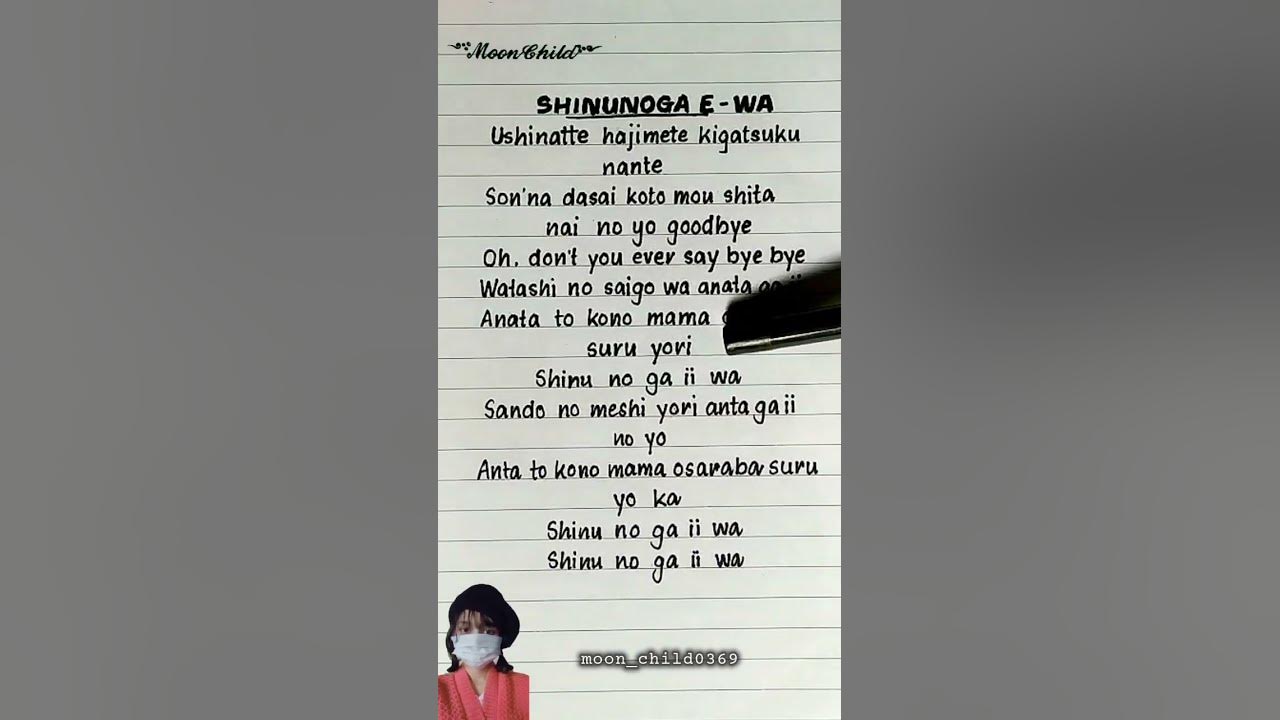 MoonChild
SHINUNOGA E-WA
Ushinatte hajimete kigatsuku
nante
Son'na dasai koto mou shita
nai no yo goodbye
Oh, don't you ever say bye bye
Watashi no saigo wa anata
Anata to kono mama
suru yori
Shinu no ga ii wa
Sando no meshi yori anta ga ii
no yo
Anta to kono mama osaraba suru
yo ka
Shinu no ga ii wa
Shinu no ga ii wa
moon_child0369